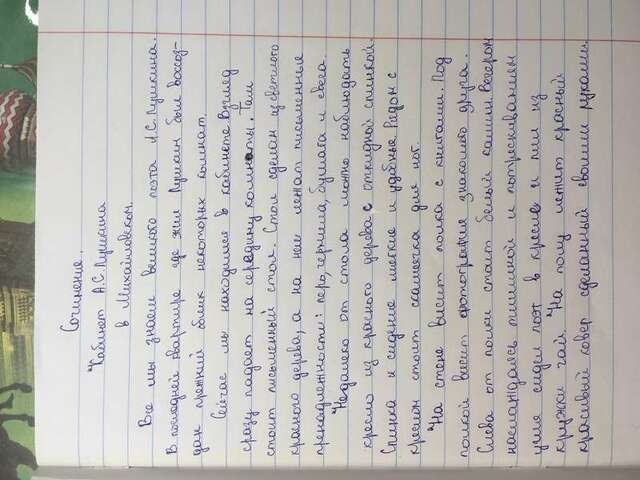 Сочинение.
Кабинет А.С.Пушкина
в Михайловском.
Все мы знаем великого поэта А.С.Пушкина.
В последней квартире где жил Пушкин был воссоз-
дан прежний облик некоторых комнат.
Сейчас мы находимся в кабинете Взгляд
сразу падает на середину комнаты. Там
стоит письменный стол. Стол сделан из светлого
красного дерева, а на нем лежат письменные
пренадлежности: перо, чернила, бумага и свеча.
Недалеко от стола можно наблюдать
кресло из красного дерева с откидной спинкой.
Спинка и сидение мягкие и удобные Рядом с
креслом стоит скамеечка для ног.
На стене висит полка с книгами. Под
полкой висит фотография знакомого друга.
Слева от полки стоит белый камин. Вечером
наслаждаясь тишиной и потрескиванием
угля сидел поэт в кресле и пил из
кружки чай. На полу лежит красный
красивый ковер сделанный своими руками.